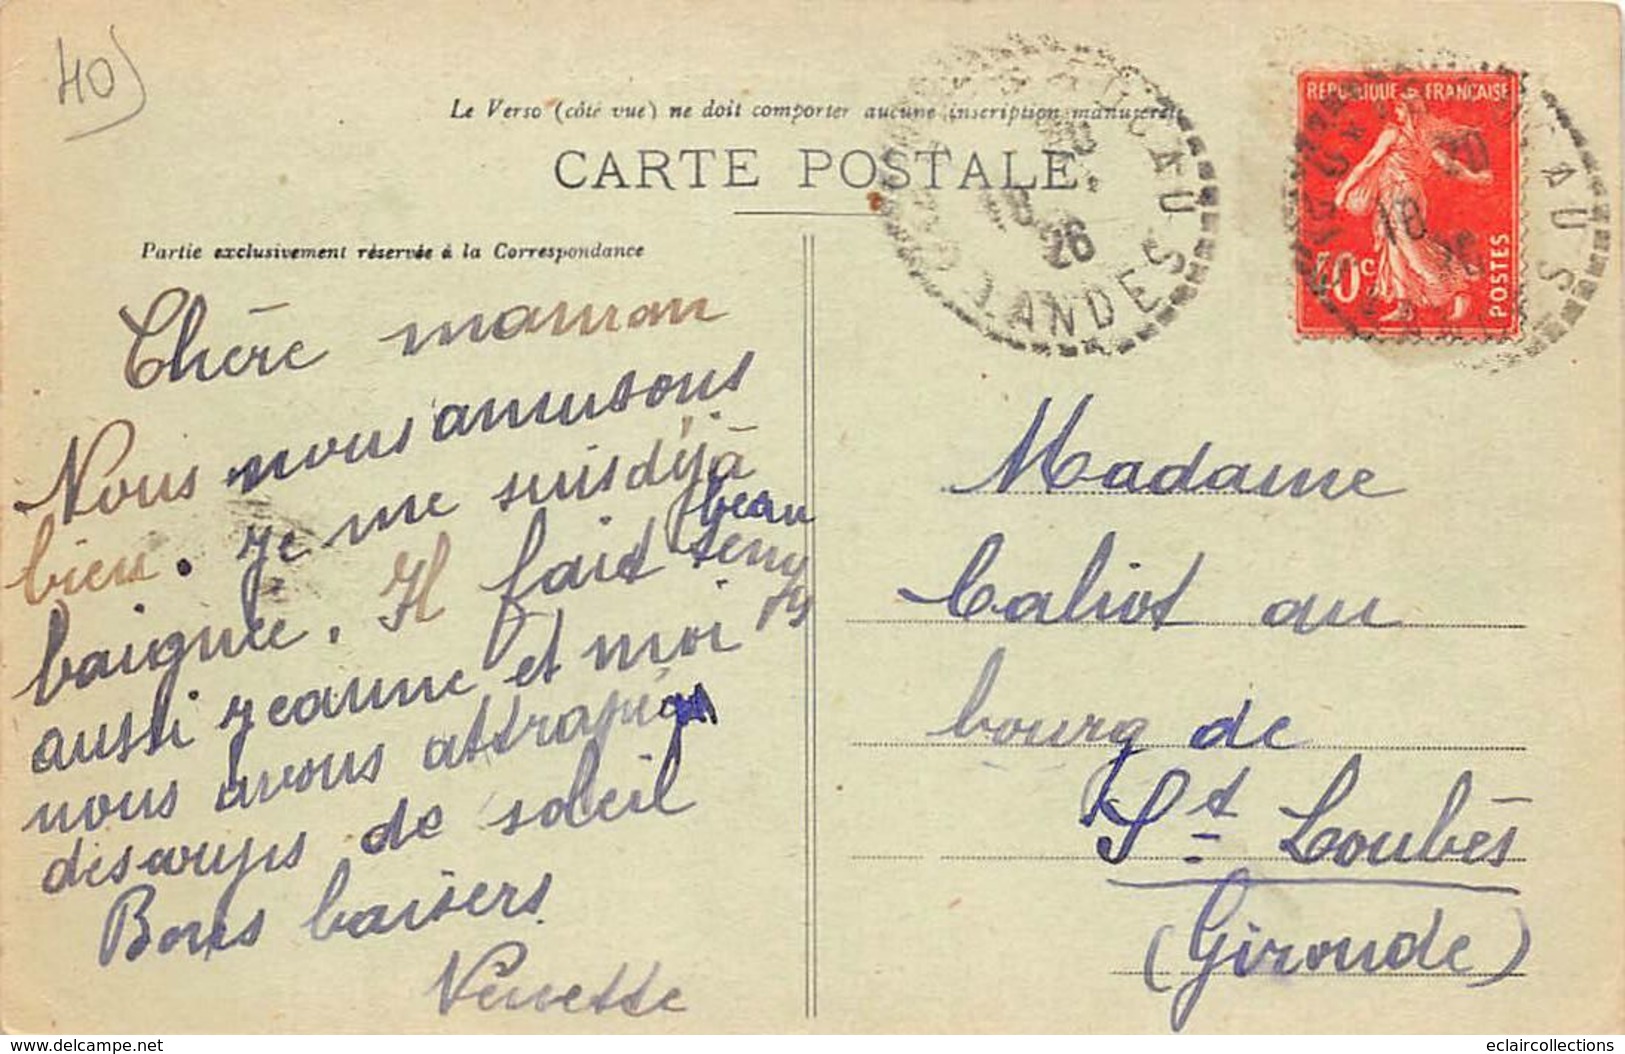 40
Le Verso (côté vue) ne doit comporter aucune inscription manuscrite
CARTE POSTALE
Partie exclusivement réservée à la Correspondance
Chère maman
Nous nous amusons
bien. Je me suis déjà
baignée. Il fait beau temps
aussi Jeanne et moi
nous avons attrapé
des coups de soleil
Bons baisers
RÉPUBLIQUE FRANÇAISE
POSTES
40c
18
26
LANDES
Madame
Caliot au
bourg de
St Loubès
(Gironde)
www.delcampe.net
eclaircollections